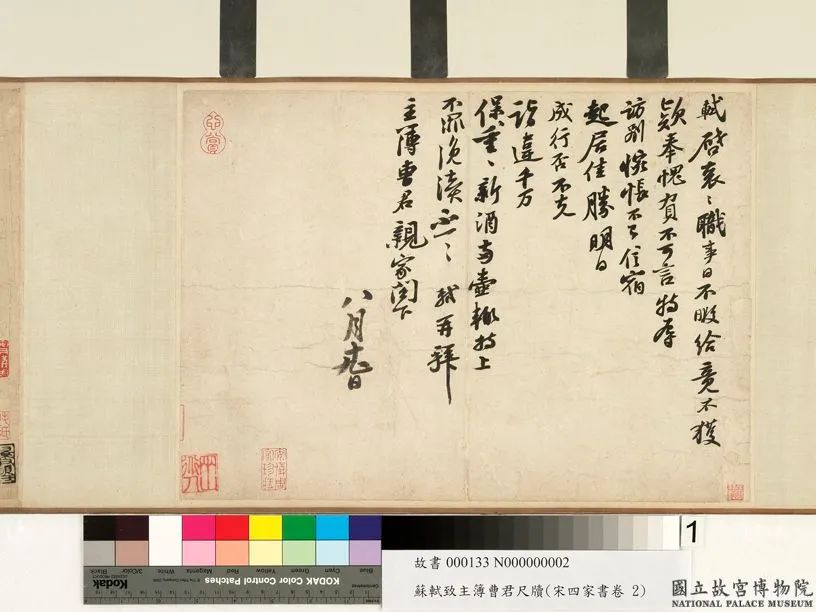 軾啓衰〻職事日不暇給竟不獲
款奉愧負不可言特辱
訪別惋悵不已信宿
起居佳勝明日
成行否不克
詣違千万
保重〻新酒兩壺輒持上
不罪浼瀆不一〻軾再拜
主簿曹君親家閤下
八月十九日
Black
3/Color
White
Magenta
Red
Yellow
Green
Cyan
Blue
Kodak
KODAK Color Control Patches
1
故書 000133 N000000002
蘇軾致主簿曹君尺牘(宋四家書卷 2)
國立故宮博物院
NATIONAL PALACE MUSEUM